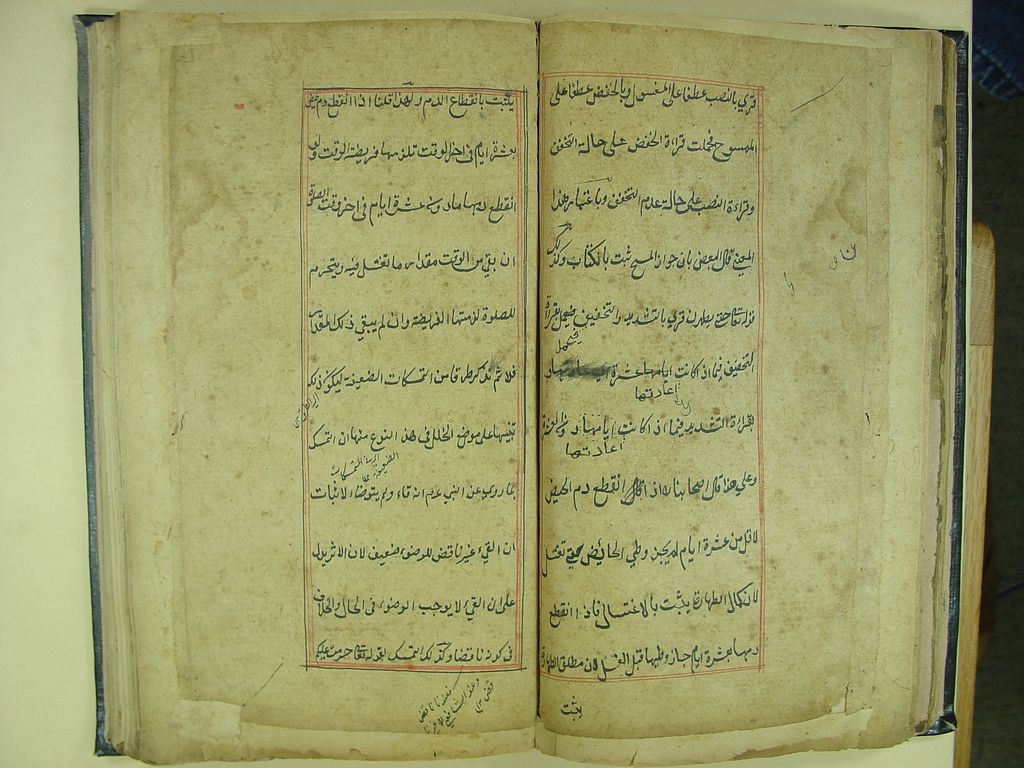 قرئ بالنصب عطفا على المغسول وبالخفض عطفا على
الممسوح فحملت قراءة الخفض على حالة التخفف
وقراءة النصب على حالة عدم التخفف وباعتبار هذا
المعنى قال البعض بان جواز المسح ثبت بالكتاب وكذلك
قوله تعالى حتى يطهرن قرئ بالتشديد والتخفيف فيعمل بقراءة
فيعمل
التخفيف فيما اذا كانت ايامها عشرة
أعادتها
بقراءة التشديد فيما اذا كانت ايامها دون العشرة
أعادتها
وعلى هذا قال اصحابنا اذا انقطع دم الحيض
لاقل من عشرة ايام لم يجز وطي الحائض حتى تغتسل
لان كمال الطهارة يثبت بالاغتسال فاذا انقطع
دمها بعشرة ايام جاز وطيها قبل الغسل لان مطلق الطهارة
يثبت
يثبت بانقطاع الدم ولهذا قلنا اذا انقطع دم الحيض
بعشرة ايام في اخر الوقت تلزمها فريضة الوقت ولو
انقطع دمها مادون عشرة ايام في اخر وقت الصلوة
ان بقي من الوقت مقدار ما تغتسل فيه ويتحرم
للصلوة لزمتها الفريضة وان لم يبقى ذلك المقدار
فلا ثم نذكر طرقا من التمسكات الضعيفة ليكون ذلك
تنبيها على موضع الخلل في هذا النوع منها ان التمسك
الضعيفة
بما روى عن النبي عدم انه قاء ولم يتوضاء لاثبات
ان القيء غير ناقض للوضوء ضعيف لان الاثر يدل
على ان القيء لا يوجب الوضوء في الحال والخلاف
في كونه ناقضا وكذلك التمسك بقوله تعالى حرمت عليكم